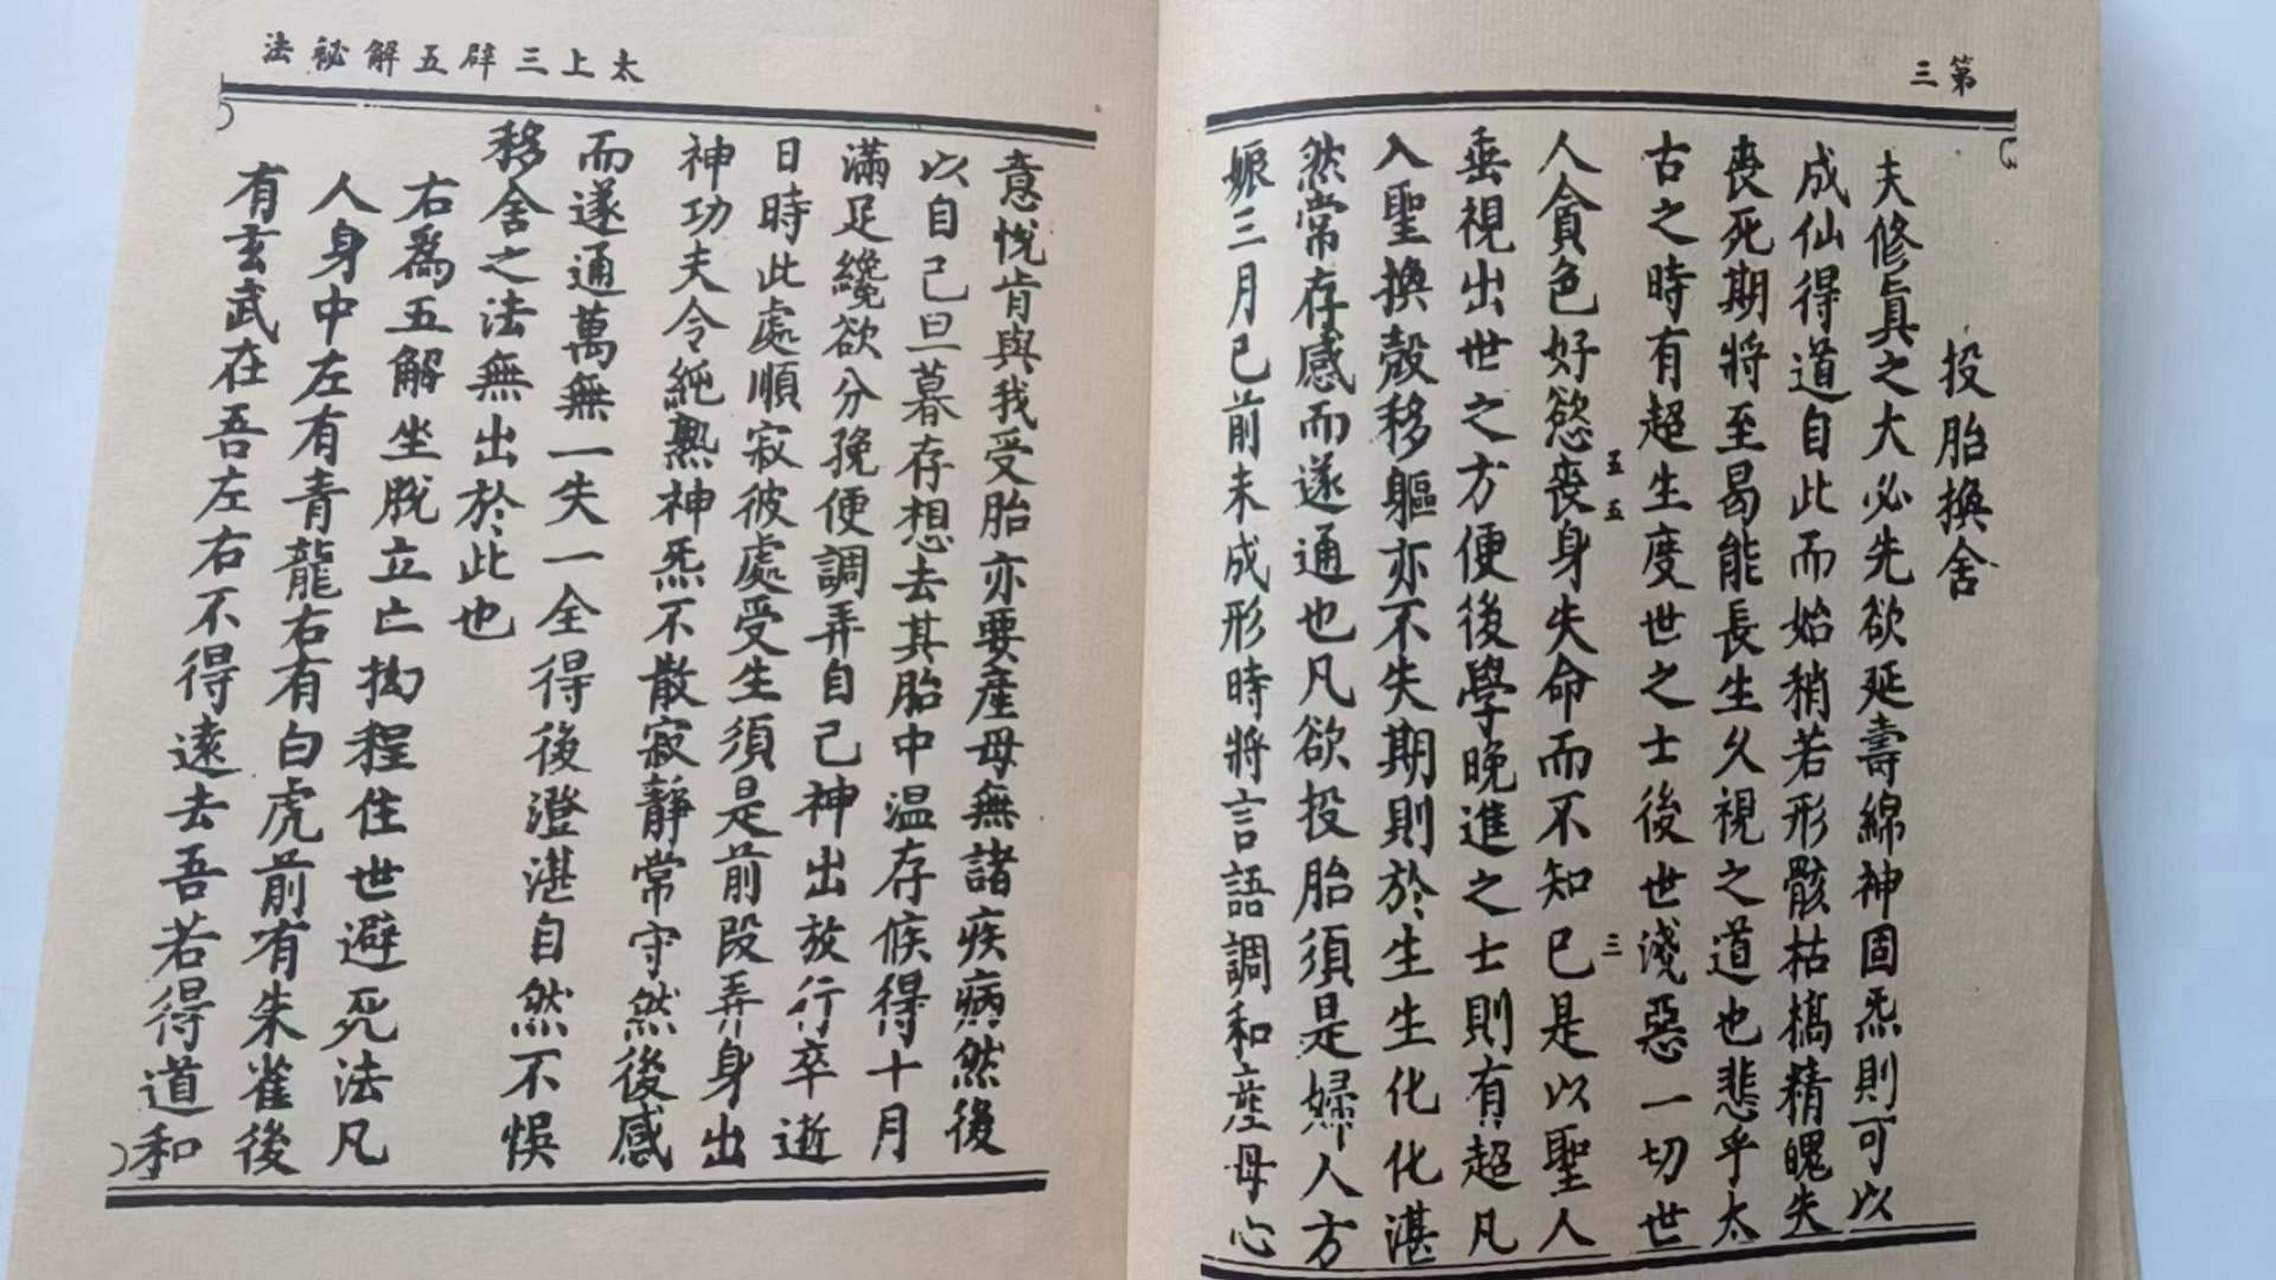 第三
投胎換舍
夫修真之大必先欲延壽綿神固炁則可以
成仙得道自此而始稍若形骸枯槁精魄失
喪死期將至曷能長生久視之道也悲乎太
古之時有超生度世之士後世淺惡一切世
五五
三
人貪色好慾喪身失命而不知已是以聖人
垂視出世之方便後學晚進之士則有超凡
入聖換殼移軀亦不失期則於生生化化湛
然常存感而遂通也凡欲投胎須是婦人方
娠三月已前未成形時將言語調和産母心
太上三辟五解祕法
意悅肯與我受胎亦要産母無諸疾病然後
以自己旦暮存想去其胎中温存候得十月
滿足纔欲分娩便調弄自己神出放行卒逝
日時此處順寂彼處受生須是前段弄身出
神功夫令純熟神炁不散寂靜常守然後感
而遂通萬無一失一全得後澄湛自然不悞
移舍之法無出於此也
右爲五解坐脫立亡拗程住世避死法凡
人身中左有青龍右有白虎前有朱雀後
有玄武在吾左右不得遠去吾若得道和